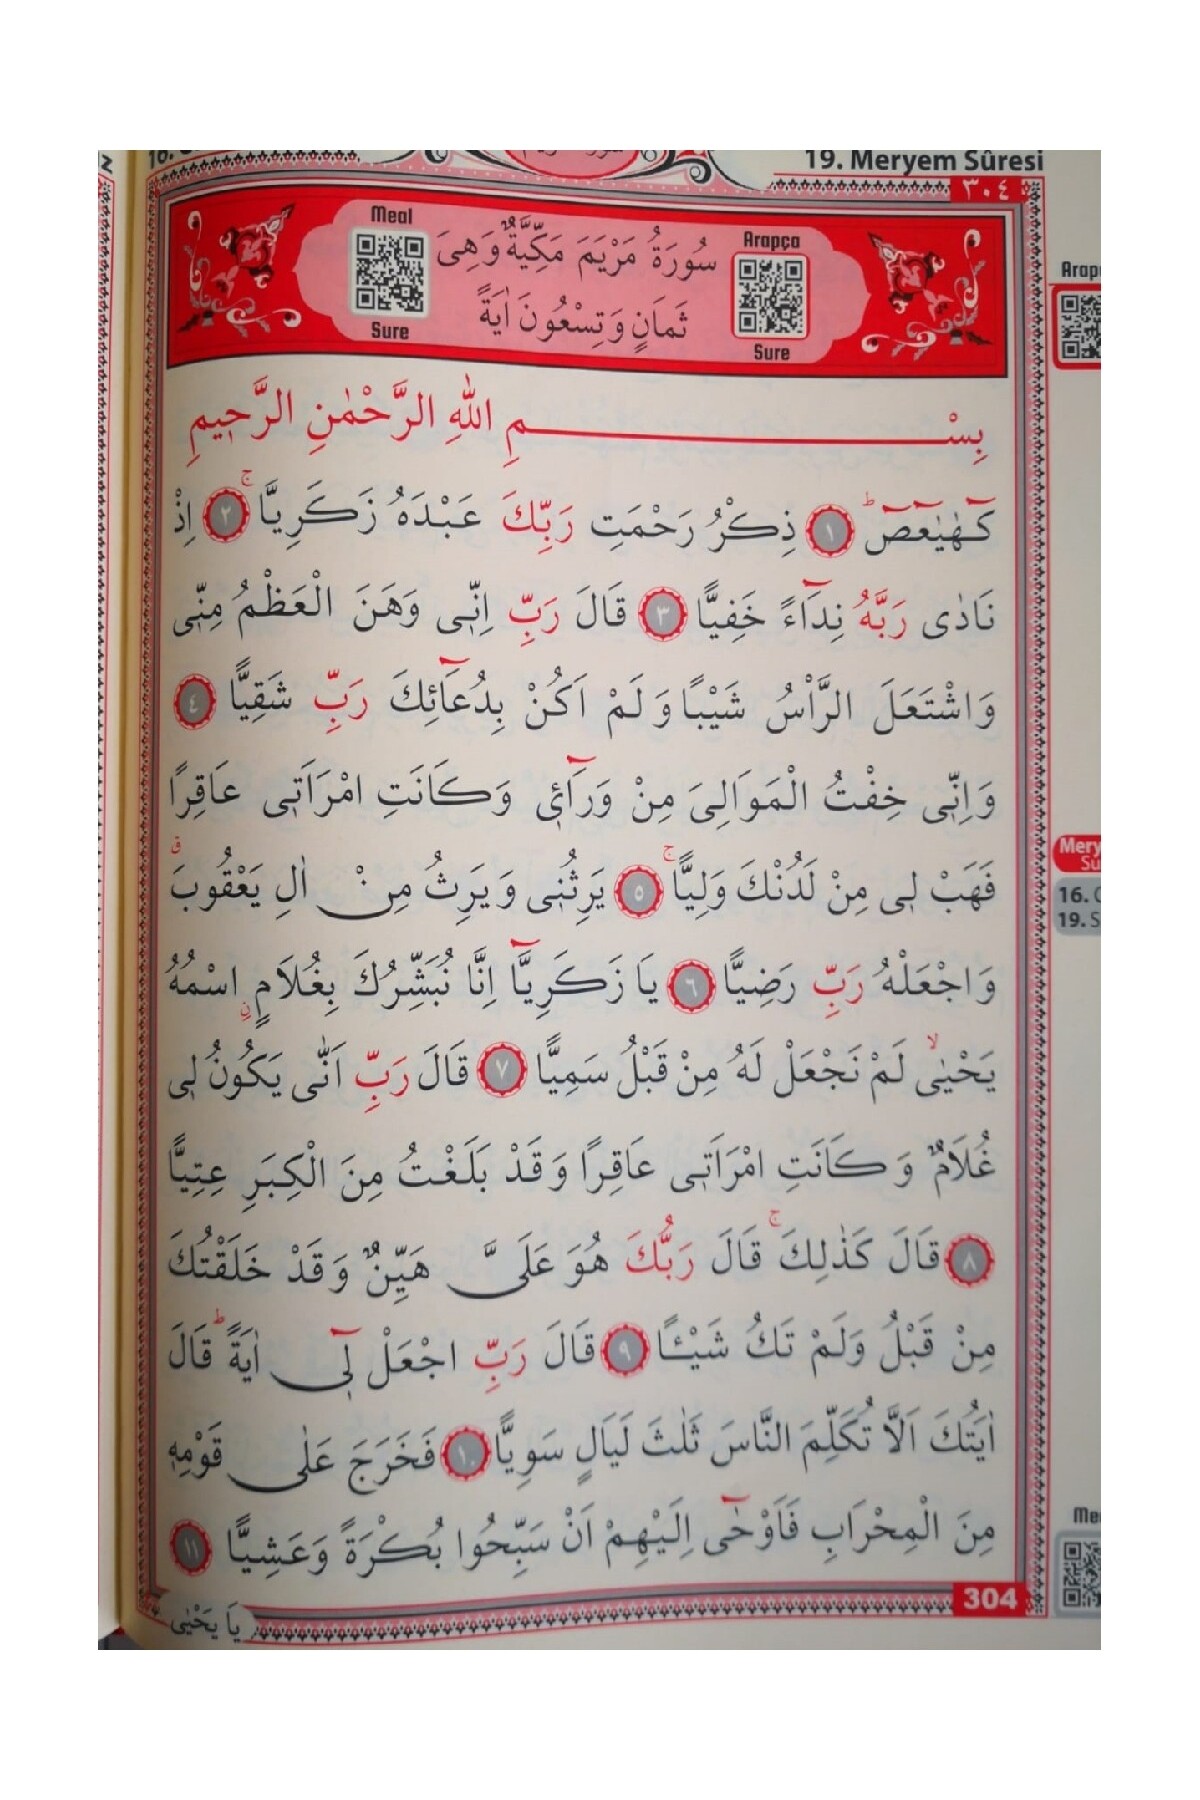 19. Meryem Sûresi
٣٠٤
Meal
Arapça
سُورَةُ مَرْيَمَ مَكِّيَّةٌ وَهِىَ
ثَمَانٍ وَتِسْعُونَ اٰيَةً
Sure
Sure
بِسْمِ اللّٰهِ الرَّحْمٰنِ الرَّحٖيمِ
كٓهٰيٰعٓصٓ ؕ ﴿١﴾ ذِكْرُ رَحْمَتِ رَبِّكَ عَبْدَهُ زَكَرِيَّا ۚ ﴿٢﴾ اِذْ
نَادٰى رَبَّهُ نِدَٓاءً خَفِيًّا ﴿٣﴾ قَالَ رَبِّ اِنّٖى وَهَنَ الْعَظْمُ مِنّٖى
وَاشْتَعَلَ الرَّاْسُ شَيْبًا وَلَمْ اَكُنْ بِدُعَٓائِكَ رَبِّ شَقِيًّا ﴿٤﴾
وَاِنّٖى خِفْتُ الْمَوَالِىَ مِنْ وَرَٓائٖ وَكَانَتِ امْرَاَتٖى عَاقِرًا
فَهَبْ لٖى مِنْ لَدُنْكَ وَلِيًّا ۚ ﴿٥﴾ يَرِثُنٖى وَيَرِثُ مِنْ اٰلِ يَعْقُوبَ ۗ
وَاجْعَلْهُ رَبِّ رَضِيًّا ﴿٦﴾ يَا زَكَرِيَّٓا اِنَّا نُبَشِّرُكَ بِغُلَامٍ اسْمُهُ
يَحْيٰى ۙ لَمْ نَجْعَلْ لَهُ مِنْ قَبْلُ سَمِيًّا ﴿٧﴾ قَالَ رَبِّ اَنّٰى يَكُونُ لٖى
غُلَامٌ وَكَانَتِ امْرَاَتٖى عَاقِرًا وَقَدْ بَلَغْتُ مِنَ الْكِبَرِ عِتِيًّا
﴿٨﴾ قَالَ كَذٰلِكَ ۚ قَالَ رَبُّكَ هُوَ عَلَىَّ هَيِّنٌ وَقَدْ خَلَقْتُكَ
مِنْ قَبْلُ وَلَمْ تَكُ شَيْـًٔا ﴿٩﴾ قَالَ رَبِّ اجْعَلْ لٖٓى اٰيَةً ؕ قَالَ
اٰيَتُكَ اَلَّا تُكَلِّمَ النَّاسَ ثَلٰثَ لَيَالٍ سَوِيًّا ﴿١٠﴾ فَخَرَجَ عَلٰى قَوْمِهٖ
مِنَ الْمِحْرَابِ فَاَوْحٰٓى اِلَيْهِمْ اَنْ سَبِّحُوا بُكْرَةً وَعَشِيًّا ﴿١١﴾
304
يَا يَحْيٰى
16.
19.